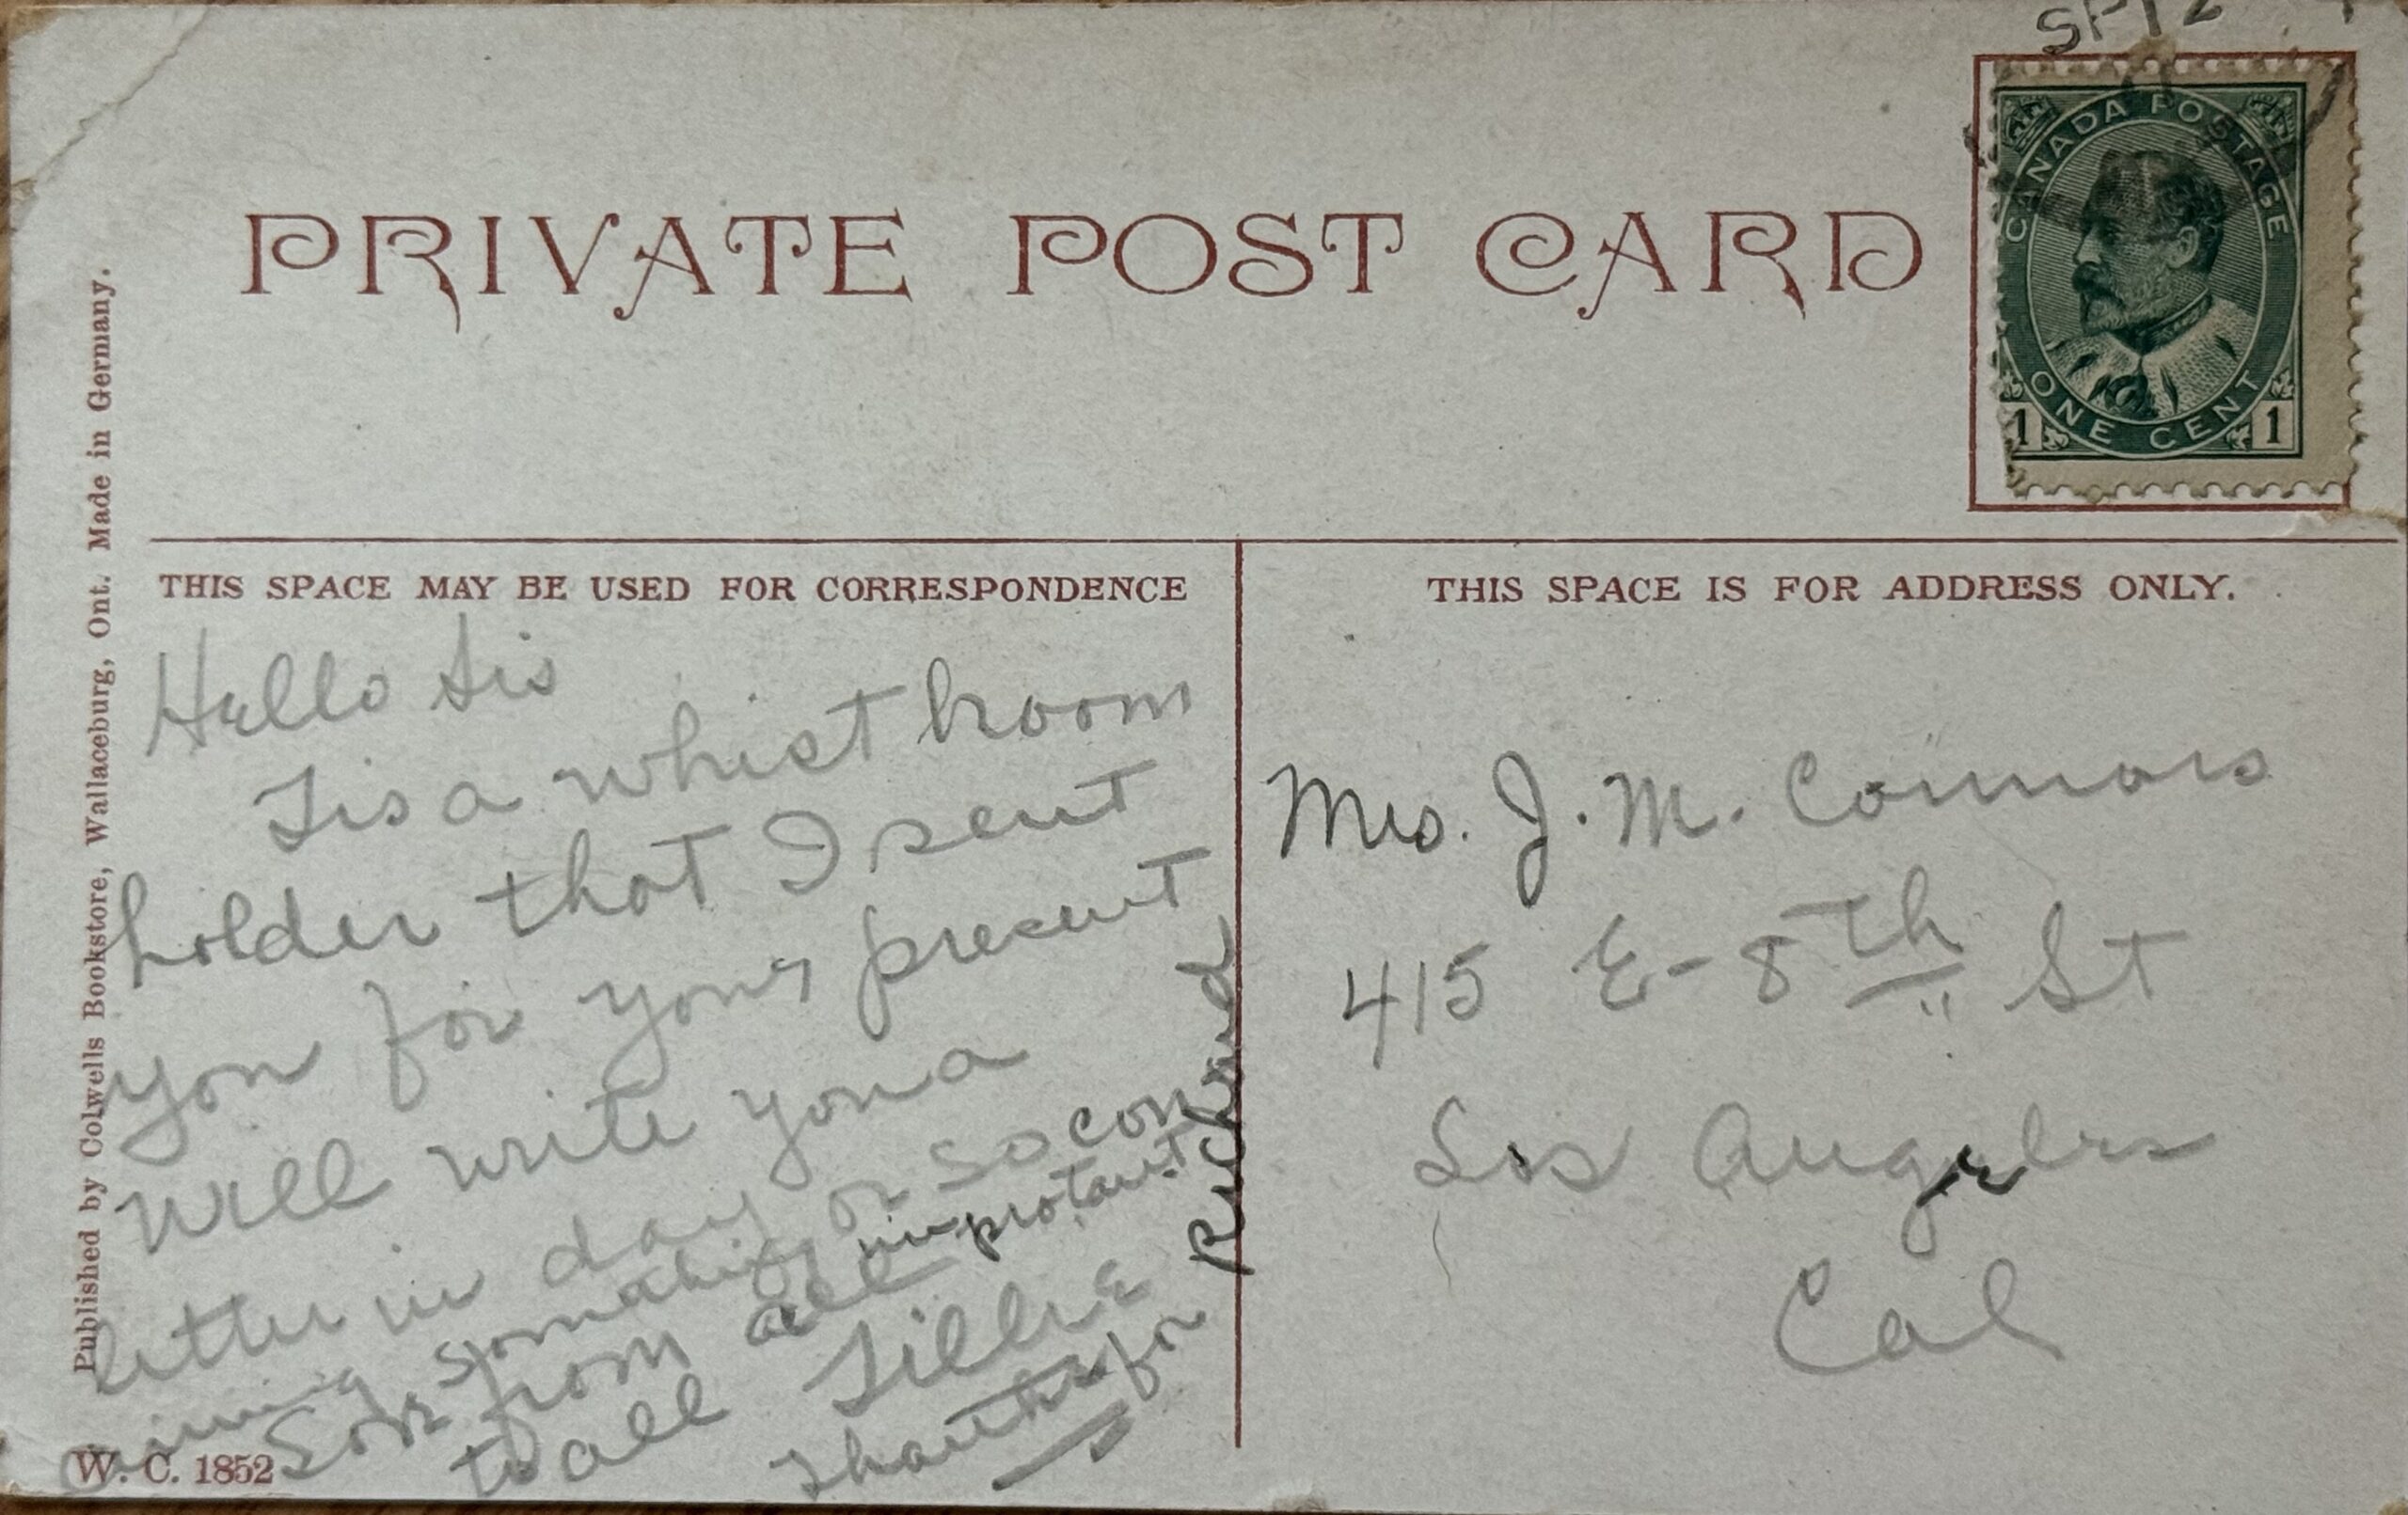 SP 12
CANADA POSTAGE
ONE CENT
1 1
PRIVATE POST CARD
THIS SPACE MAY BE USED FOR CORRESPONDENCE
Hello Sis
Tis a whist broom
holder that I sent
you for your present
Will write you a
letter in day or so con
cirning somathing all improtant
Love from all
to all Tillie
Thanks for
Richard
THIS SPACE IS FOR ADDRESS ONLY.
Mrs. J. M. Connors
415 E-8th St
Los Angeles
Cal
Published by Colwells Bookstore, Wallaceburg, Ont. Made in Germany.
W. C. 1852